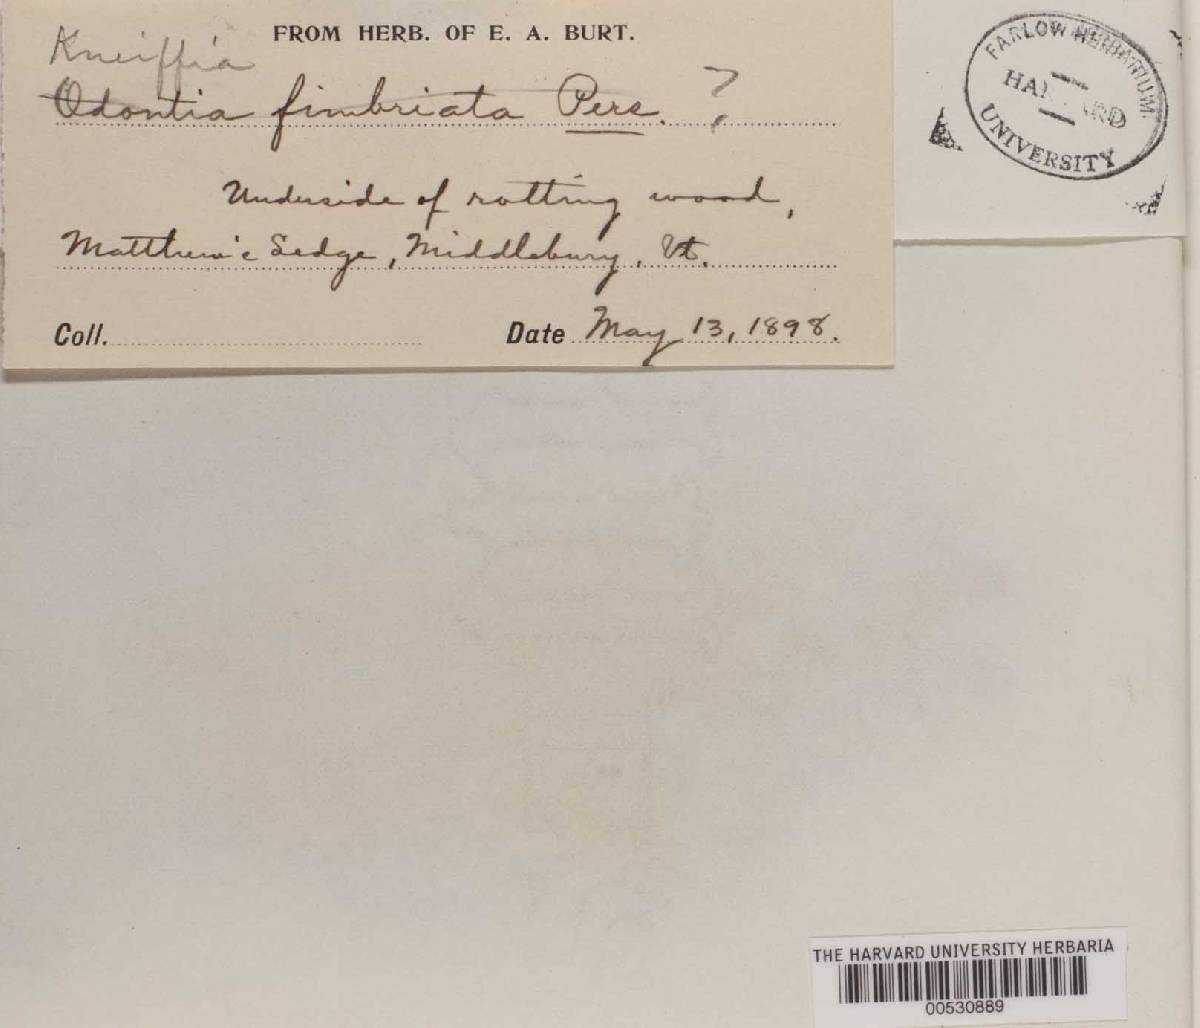 FROM HERB. OF E. A. BURT.
Kneiffia
Odontia fimbriata Pers. ?
Underside of rotting wood,
Matthew's Ledge, Middlebury, Vt.
Coll.
Date May 13, 1898.
FARLOW HERBARIUM
HARVARD
UNIVERSITY
THE HARVARD UNIVERSITY HERBARIA
00530889